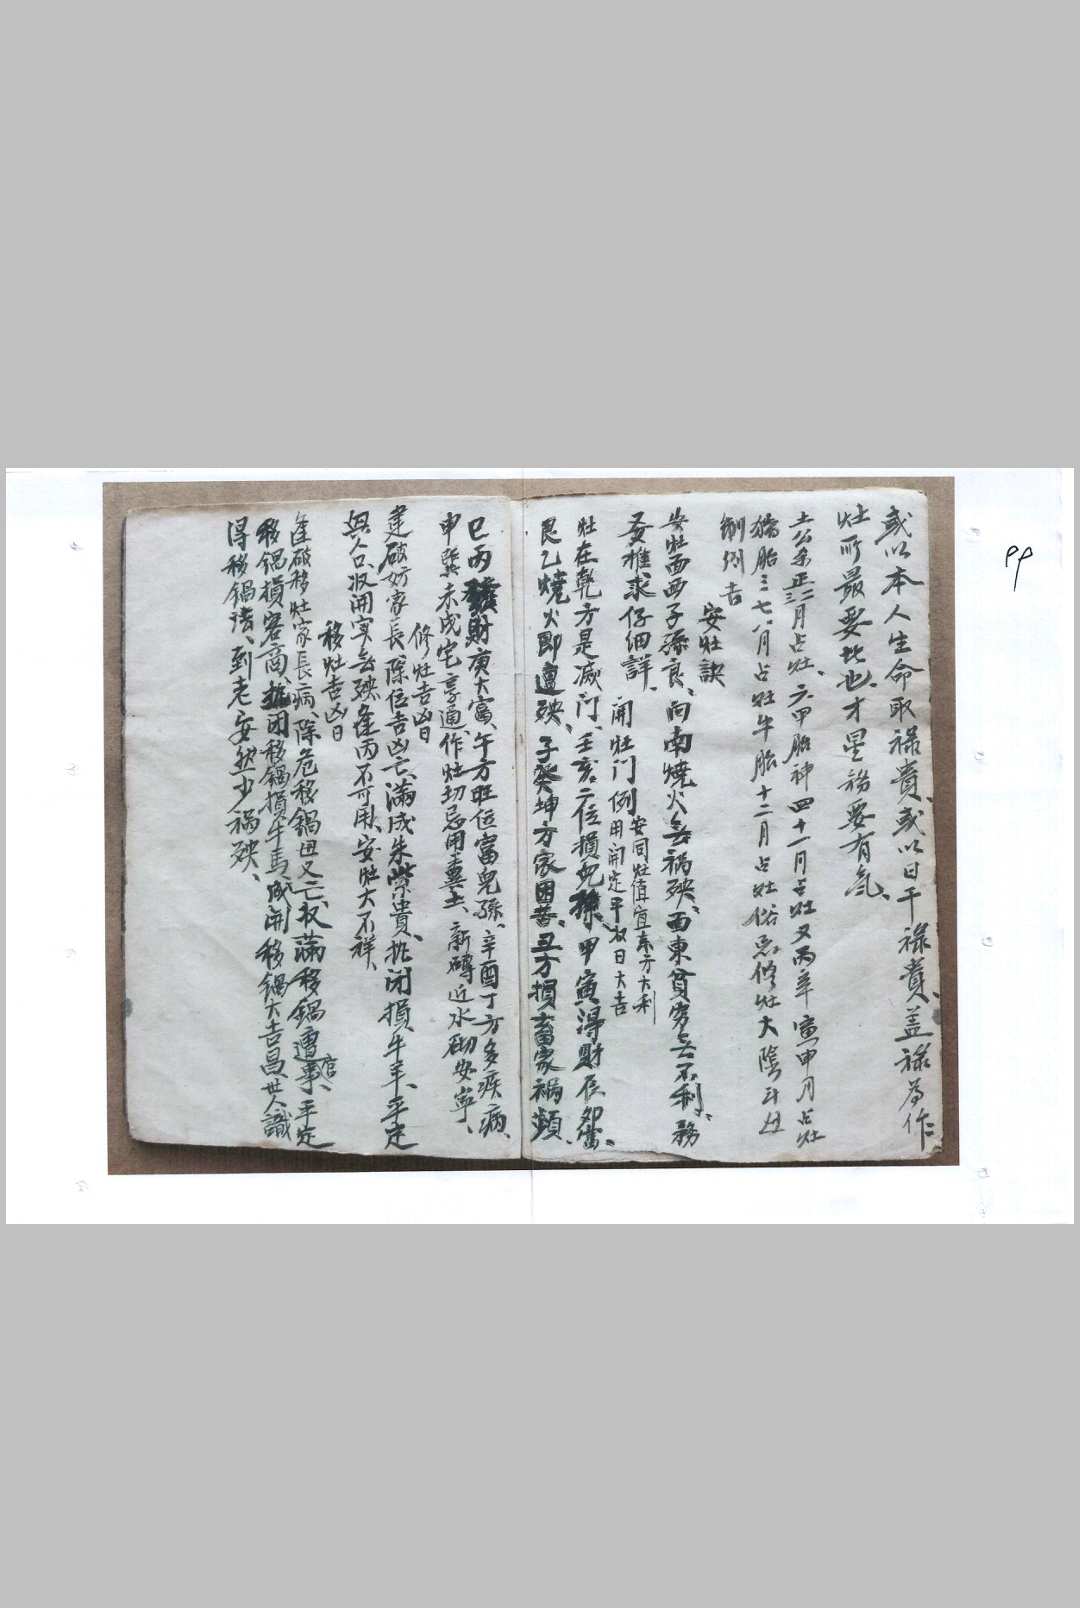 或以本人生命取祿貴、或以日干祿貴、蓋祿為作
灶所最要批也、才星務要有氣、
土公杀正二三月占灶、六甲胎神四十一月占灶又丙辛寅申月占灶
猪胎三七八月占灶牛胎十二月占灶俗忌修灶大陰
制例吉
安灶訣
安灶面西子孫良、向南燒火無禍殃、面東貧窮無不利、務
要推求仔細詳、
開灶门例安同灶值宜本方大利
用開定平收日大吉
灶在乾方是滅门、壬亥二位損兒孫、甲寅得財辰卯富、
艮乙燒火即遭殃、子癸坤方家困苦、丑方損畜家禍頻、
巳丙發財庚大富、午方旺位富兒孫、辛酉丁方多疾病、
申巽未戌宅享通、作灶切忌用糞土、新磚近水砌安寧、
修灶吉凶日
建破妨家長、除位吉凶亡、滿成朱紫貴、执闭損牛羊、平定
興人口、收開寅無殃、逢丙不可用、安灶大不祥、
移灶吉凶日
逢破移灶家長病、除危移鍋丑又亡、收滿移鍋遭官事、平定
移鍋損客商、执闭移鍋損牛馬、成開移鍋大吉昌、世人識
得移鍋诗、到老安然少禍殃、
99